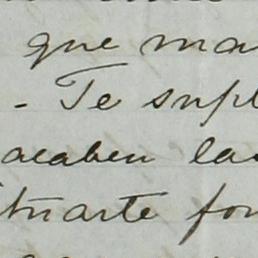 que ma
- Te supl
acaben las
ituarte for